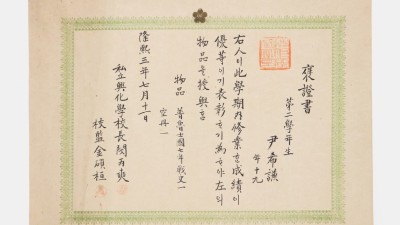 褒證書
第二學年生
尹希謙
年十九
右人이此學期內修業意成績이
優等이기表彰하기爲하야左의
物品을授與홈
物品 普魯士國七年戰史一
空冊一
隆熙三年七月十一日
私立興化學校長閔丙奭
校監金碩桓